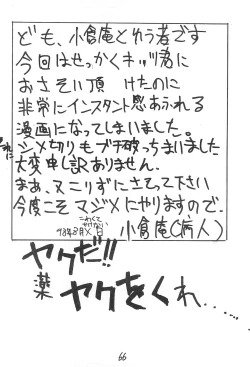 ども、小倉庵という者です
今回はせっかくネッ君に
おさそい頂けたのに
非常にインスタント感あふれる
漫画になってしまいました。
それに
シメ切りもブチ破っちまいました
大変申し訳ありません。
まあ、ヌこりずに立てて下さい
今度こそマジメにやりますので。
こわくて
かけない
'98年8月X日
小倉庵(病人)
ヤクだ!!
薬
ヤクをくれ.....
66